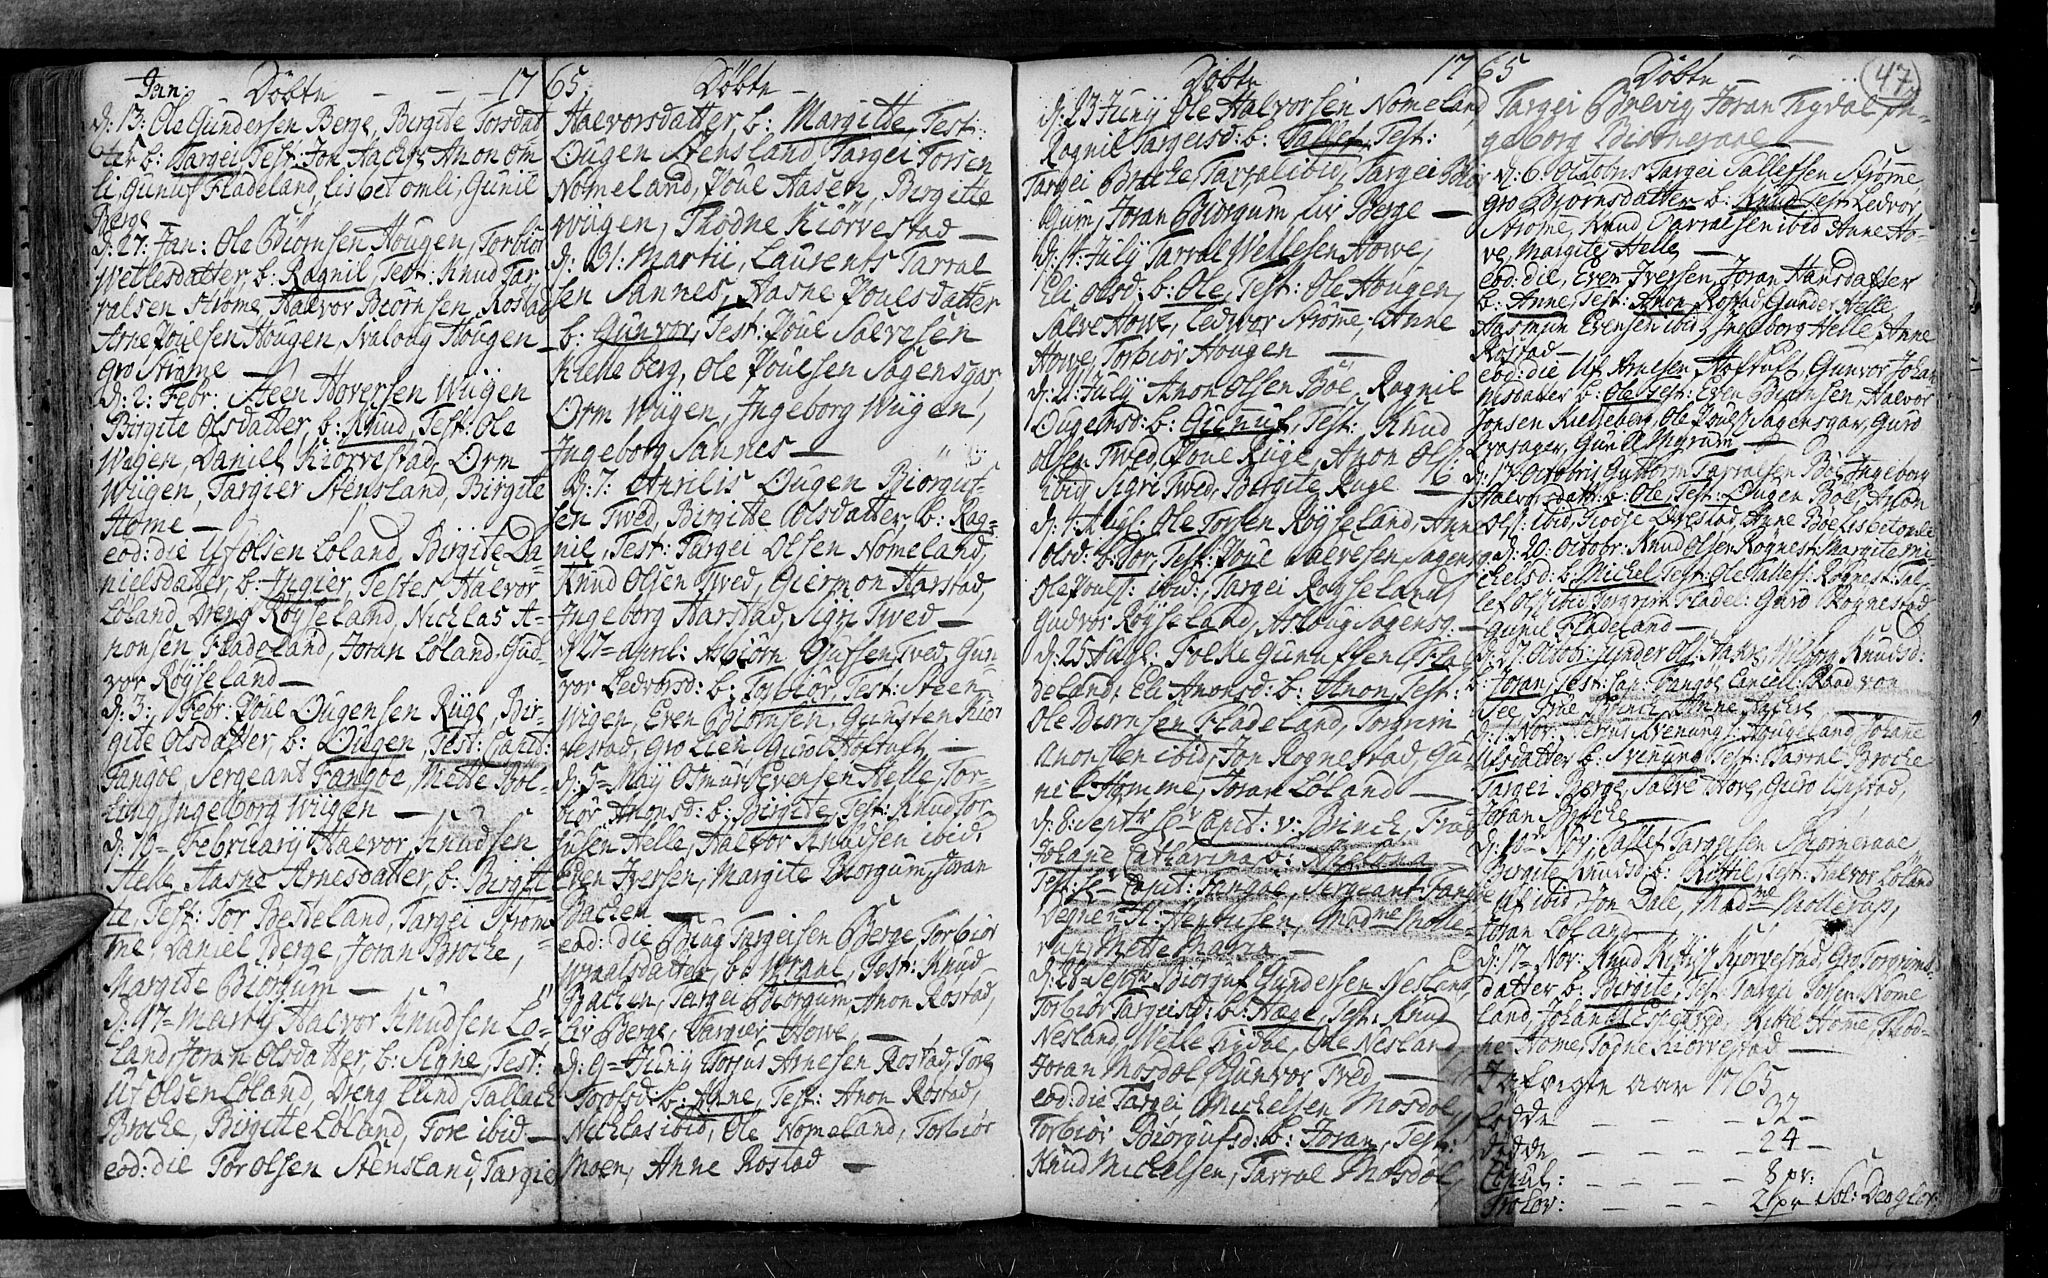 Jan: Döbte - - - 17
d: 13: Ole Gundersen Berge, Birgite Torsdat
ter b: Targei Test: Jon Aachre Anon om
li, Gunuf Fladeland, lisbet omli, Gunil
Berge
d: 27: Jan: Ole Biörnsen Hougen, Torbiör
Wetlesdatter, b: Ragnil, Test: Knud Tar
ralsen Ströme, Halvor Biörnsen, Rostad
Arne Poulsen Hougen, Svaloug Hougen
Gro Ströme —
d: 2: Febr: Steen Hoversen Wiigen
Birgite Olsdatter, b: Knud, Test: Ole
Wiigen, Daniel Kiörvestad, Orm
Wiigen, Targier Stensland, Birgite
Home —
eod: die Uf Olsen Löland, Birgite Da
nielsdatter, b: Ingier, Testes Halvor
Löland, Dreng Röyseland, Nichlas A=
nonsen Fladeland, Joran Löland, Gud
vor Röyseland —
d: 3: Febr: Poul Ougensen Rüge, Bir=
gite Olsdatter, b: Ougen, Test: Capit:
Fangöe, Sergeant Fangöe, Mette Böl
ling, Ingeborg Wigen —
d: 10= Februarij Halvor Knudsen
Helle Aasne Arnesdatter, b: Birgit
te, Test: Tor Besteland, Targei Ström=
me, Daniel Berge, Joran Broche,
Margite Biorgum —
d: 17= Martij Halvor Knudsen Lö=
land, Joran Olsdatter, b: Signe, Test:
Uf Olsen Löland, Dreng Lund, Tallach
Broche, Birgitte Löland, Tore ibid —
eod: die Tor Olsen Stensland, Targie
65. Döbte —
Halvorsdatter, b: Margitte Test:
Ougen Stensland Targei Torsen
Nomeland, Poul Aasen, Birgitte
Wiigen, Thodne Kiörvestad —
d: 31: Martii, Laurents Tarral
sen Sannes, Aasne Poulsdatter
b: Gunvor, Test: Poul Salvesen
Kielleberg, Ole Poulsen Sagensgar,
Orm Wiigen, Ingeborg Wiigen,
Ingeborg Sannes —
D: 7: Aprilis Ougen Biorguf=
sen Tved, Birgitte Olsdatter, b: Rag=
nil, Test: Targei Olsen Nomeland,
Knud Olsen Tved, Giermon Harstad,
Ingeborg Harstad, Sigri Tved —
d 27= April: Asbiörn Tved, Gun
vor Ledvorsd: b: Torbiör, Test: Steen
Wigen, Even Biörnsen, Gunsten Kiör
vestad, Gro Lien, Guro Holtuft —
d: 5= Maij Osmun Evensen Helle, Tor=
biör Anonsd: b: Birgitte, Test: Knud Tor
Helle, Halvor Knudsen ibid,
Even Iversen, Margite Biorgum, Joran
Bachen —
eod: die Targeisen Berge, Torbiör
b: Test: Knud
Bachen, Targei Biorgum, Anon Rostad,
Liv Berge, Targier Howe, —
d: 9= Junij Torjus Arnesen Rostad, Tore
Torolsd: b: Anne, Test: Anon Rostad,
Nichlas ibid, Ole Nomeland, Torbiör
Moen, Anne Rostad —
Döbte 17
d: 23 Junij Ole Halvorsen Nomeland,
Ragnil Targeisd: b: Tallef, Test:
Targei Broche, Tarral ibid, Targei Bior
gum, Joran Biorgum, Liv Berge —
d: July Tarral Wetlesen Howe,
Eli Olsd: b: Ole, Test: Ole Hougen,
Salve Howe, Ledwor Ströme, Anne
Howe, Torbiör Hougen —
d: 21: July Anon Olsen Böe, Ragnil
Ougensd: b: Gunuf, Test: Knud
Olsen Tved, Poul Rüge, Anon Ols:
ibid, Sigri Tved, Birgite Ruge —
d: Augs: Ole Torsen Röyseland, Anne
Olsd: b: Tor, Test: Poul Salvesen Sagensg:
Ole Pouls: ibid:, Targei Royseland,
Gudvor Röyseland, Asloug Sagensg: —
d: 25 Augs: Folke Gunufsen Fla
deland, Eli Anonsd: b: Anon, Test:
Ole Biornsen Fladeland, Torgrim
Anonsen ibid, Jon Rognestad, Gu=
nil Homme, Joran Löland —
d: 8: Septr Sr Capit: v: Brinch, Frue
Johane Catharina b:
Test: Sr Capit: Fangöe, Sergeant Fangöe
Madme Molle=
rup, Mette Maria —
d: 28 Septr Biorguf Gundersen Nesland,
Torbiör Targeisd: b: Hæge, Test: Knud
Nesland, Wetle Trydal, Ole Nesland
Joran Mosdöl, Gunvor Tved —
eod: die Targei Michelsen Mosdöl,
Torbiör Biorgufsd: b: Joran, Test:
Knud Michelsen, Tarral Mosdöl,
65 Döbte — 47
Targei Joran Trydal, In=
geborg —
d: 6: Octobris Targei Tallefsen Ströme,
Gro Björnsdatter b: Knud Test: Ledvor
Ströme, Knud Tarralsen ibid Anne Ho=
ve, Margite Helle —
eod: die, Even Iversen, Joran Hansdatter
b: Anne, Test: Anon Rostad, Gunder Helle
Aasmun Evensen ibid, Ingeborg Helle, Anne
Rostad —
eod: die Uf Arnesen Holtuft, Gunvor Johan
nisdatter b: Ole Test: Even Biörnsen, Halvor
Jonsen Kielleberg, Ole Pouls: Sagensgar, Guro
Gunil Myrum —
d: 13 Octobris Guttorm Tarralsen Böe, Ingeborg
Halvorsdatt: b: Ole, Test: Ougen Böe, Anon
Ols: ibid, Anne Böe, Lisbet omli
d: 20: Octobr: Knud Olsen Rognest: Margite Mi=
chelsd: b: Michel, Test: Ole Tallefs: Rognest: Tal=
lef Ols: ibid Torgrim Fladel: Guro Rognestad
Gunil Fladeland —
d: 27: Octobr: Gunder Ols: Knudsd:
b: Joran, Test: Cap: Fangöe, Cancell: Raad von
Frue Brinch, Anne
d: Nov: Svenungs: Hougeland, Johane
Ufsdatter b: Svenung, Test: Tarral Broche
Targei Berge, Salve Hove, Guro
Joran Broche
d: 10= Nov: Tallef Targusen
Birgite Knudsd: b: Kittil, Test: Halvor Löland
Uf ibid, Jon Dale, Madme Mollerup,
Joran Löland —
d: 17= Nov: Knud Kittils: Kiorvestad, Gro Torgrims
datter b: Birgite, Test: Targei Tolsen Nome
land, Johan Espetved, Kittil Home, Thod=
ne Home, Togne Kiorvestad —
I afvigte aar 1765
födde — — — 32 —
döde — — — — 24 —
Copul: — — — — 8 pr:
Trolov: — — — 2 pr Sol: Deo glor: